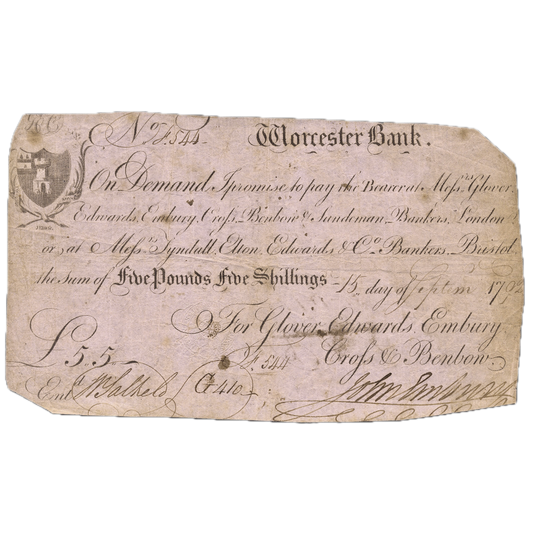 No F.544 Worcester Bank.
On Demand I promise to pay the Bearer at Messrs. Glover,
Edwards, Embury, Cross, Benbow & Sandeman Bankers, London
or, at Messrs. Tyndall, Elton, Edwards & Co. Bankers. Bristol
the Sum of Five Pounds Five Shillings 15 day of Septem
For Glover, Edwards, Embury
£5.5 F.544 Cross & Benbow
Entd. G 410 John Embury